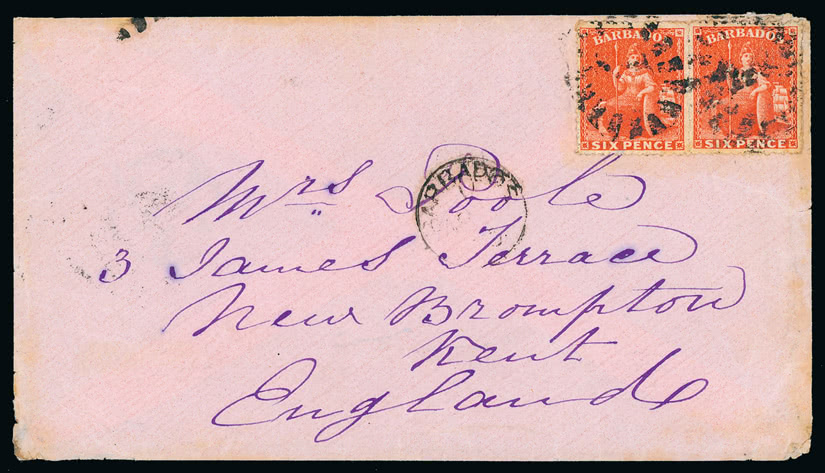 BARBADOS BARBADOS
SIX PENCE SIX PENCE
BARBADOS
Mrs Poole
3 James Terrace
New Brompton
Kent
England